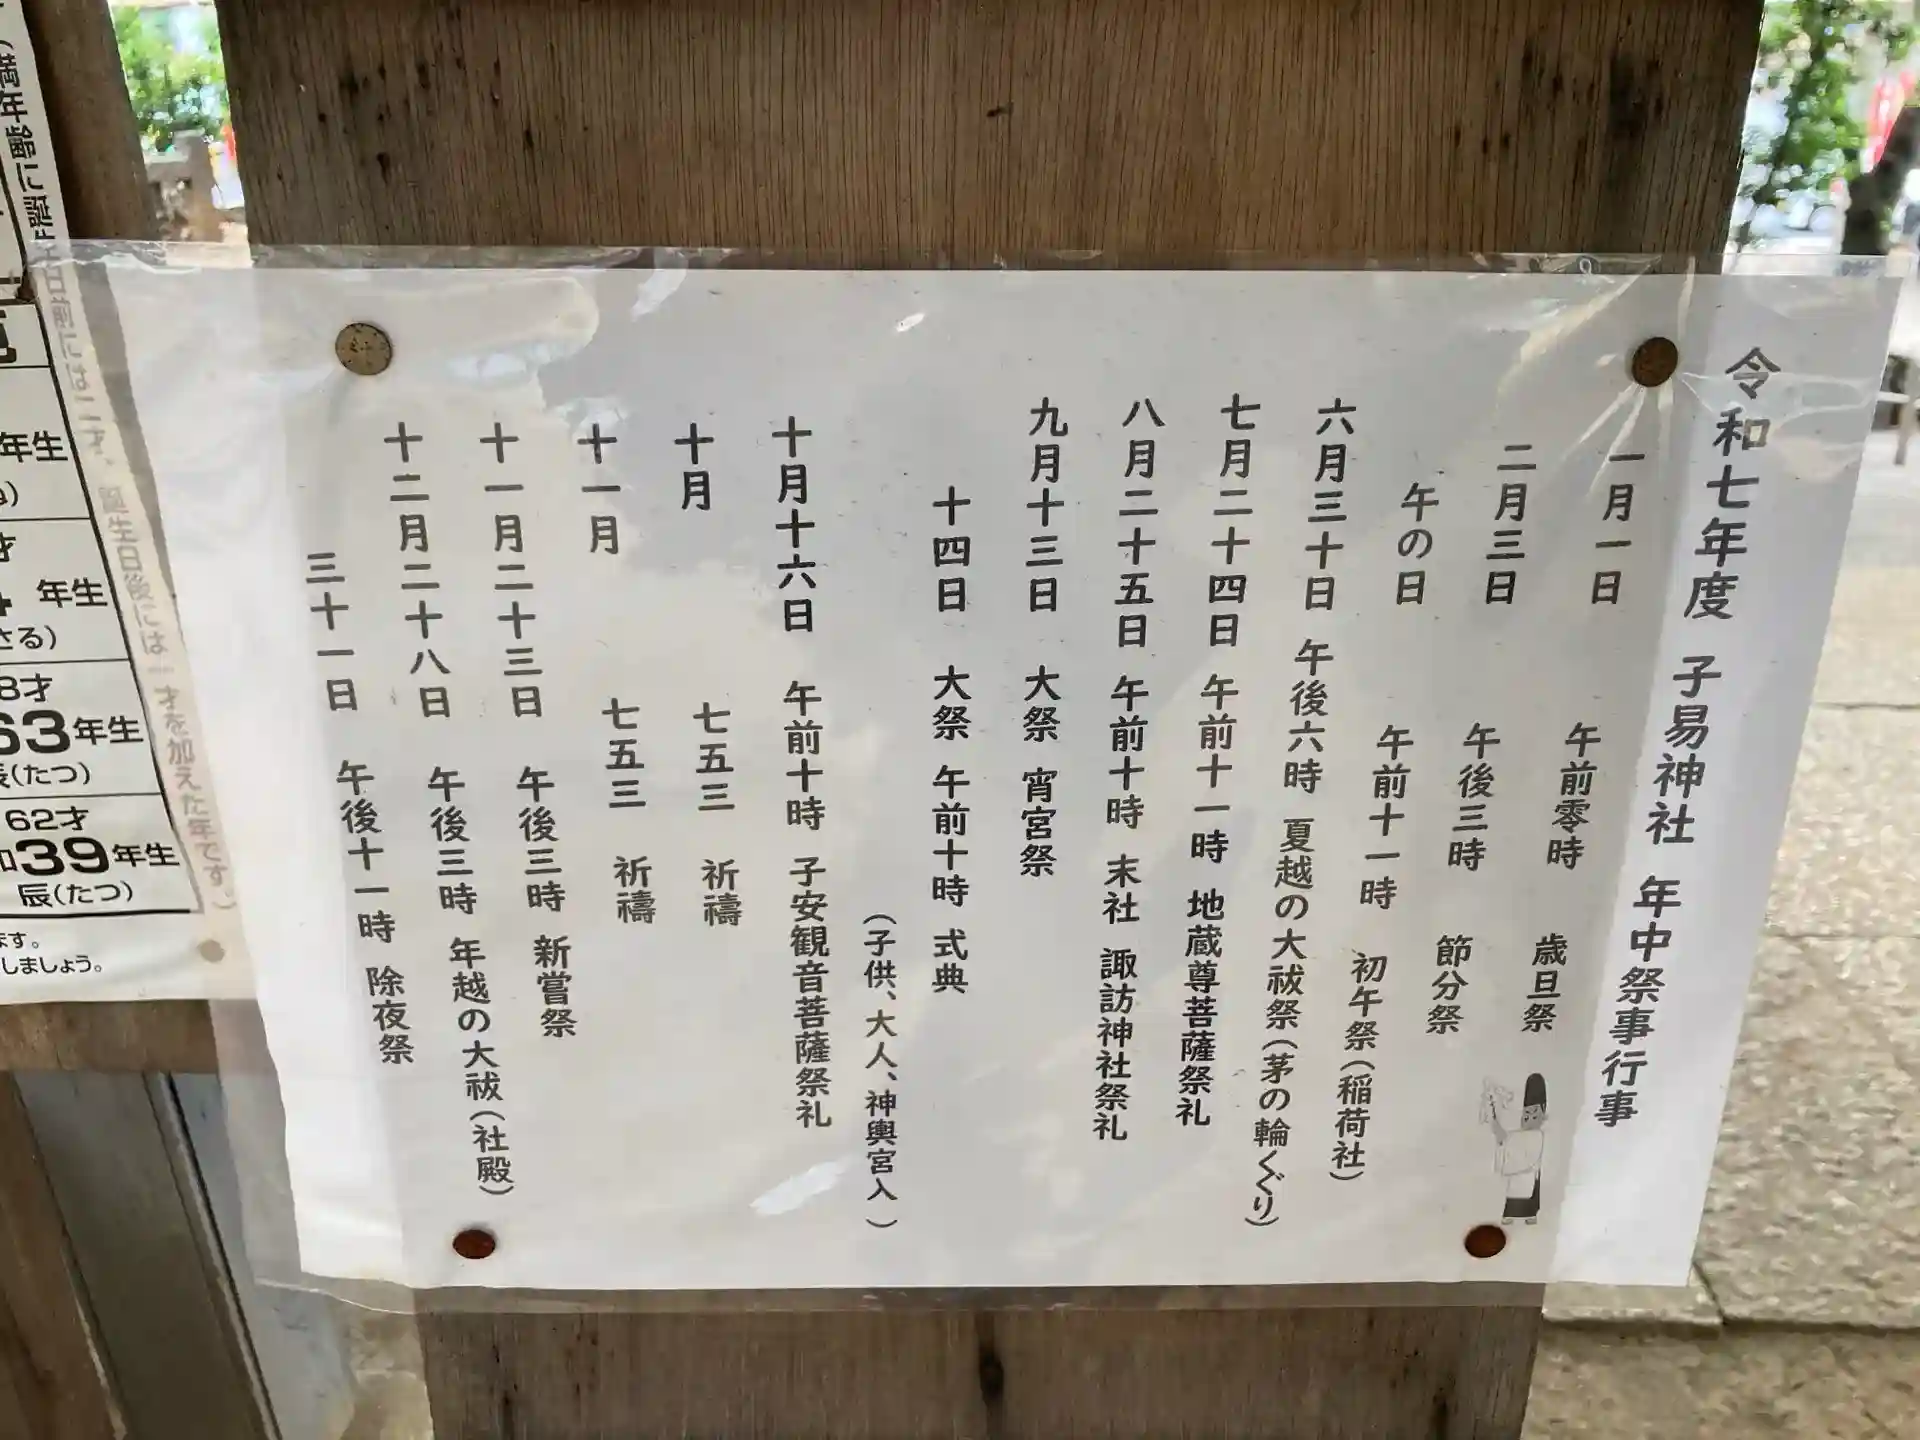 令和七年度 子易神社 年中祭事行事
一月一日 午前零時 歳旦祭
二月三日 午後三時 節分祭
午の日 午前十一時 初午祭(稲荷社)
六月三十日 午後六時 夏越の大祓祭(茅の輪くぐり)
七月二十四日 午前十一時 地蔵尊菩薩祭礼
八月二十五日 午前十時 末社 諏訪神社祭礼
九月十三日 大祭 宵宮祭
十四日 大祭 午前十時 式典
(子供、大人、神輿宮入)
十月十六日 午前十時 子安観音菩薩祭礼
十月 七五三 祈禱
十一月 七五三 祈禱
十一月二十三日 午後三時 新嘗祭
十二月二十八日 午後三時 年越の大祓(社殿)
三十一日 午後十一時 除夜祭
(満年齢に誕生日前には二才、誕生日後には一才を加えた年です。)
年生
年生
さる)
8才
63年生
(たつ)
62才
39年生
辰(たつ)
ます。
しましょう。